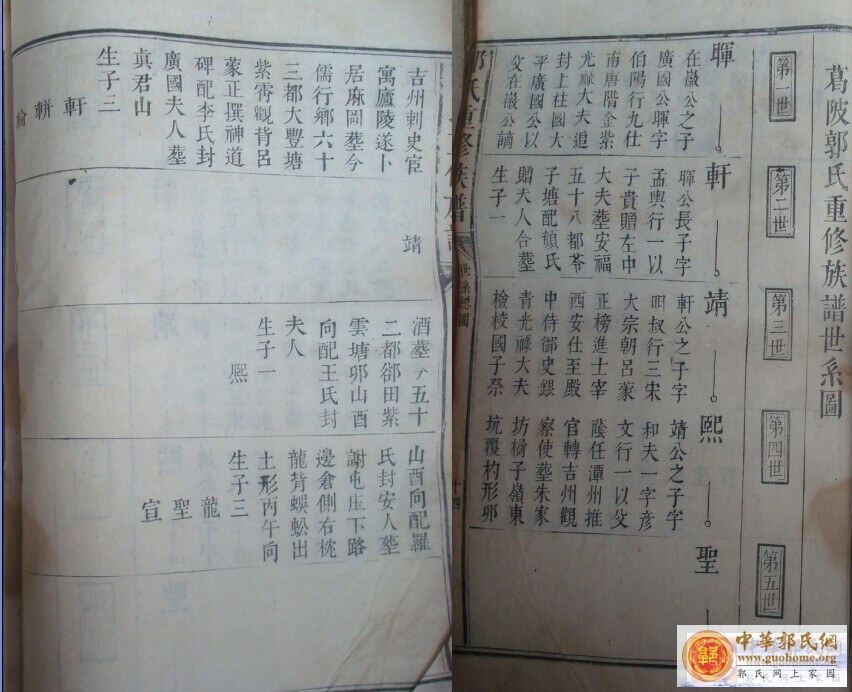 葛陂郭氏重修族譜世系圖
第一世
第二世
第三世
第四世
第五世
暉
軒
靖
熙
聖
在徽公之子字
廣國公暉字
伯陽行九仕
南唐階金紫
光祿大夫追
封上柱國大
平廣國公以
父在徽公謫
暉公長子字
孟輿行一以
子貴贈左中
大夫塟安福
五十八都苓
子塘配顏氏
贈夫人合塟
生子一
軒公之子字
明叔行三宋
大宗朝呂蒙
正榜進士宰
西安仕至殿
中侍御史銀
青光祿大夫
檢校國子祭
靖公之子字
和夫一字彥
文行一以父
蔭任潭州推
官轉吉州觀
察使塟朱家
坊榾子嶺東
坑覆杓形卯
郭氏重修族譜
世系總圖
十四
吉州刺史宦
寓廬陵遂卜
居麻岡墓今
儒行鄉六十
三都大豐塘
紫霄觀背呂
蒙正撰神道
碑配李氏封
廣國夫人塟
真君山
生子三
軒
軿
靖
酒塟今五十
二都郤田紫
雲塘卯山酉
向配王氏封
夫人
生子一
熙
山酉向配羅
氏封安人塟
謝屯庄下路
邊倉側右枕
龍背蜈蚣出
土形丙午向
生子三
龍
聖
宣
中華郭氏網
www.guohome.org
郭氏網上家園